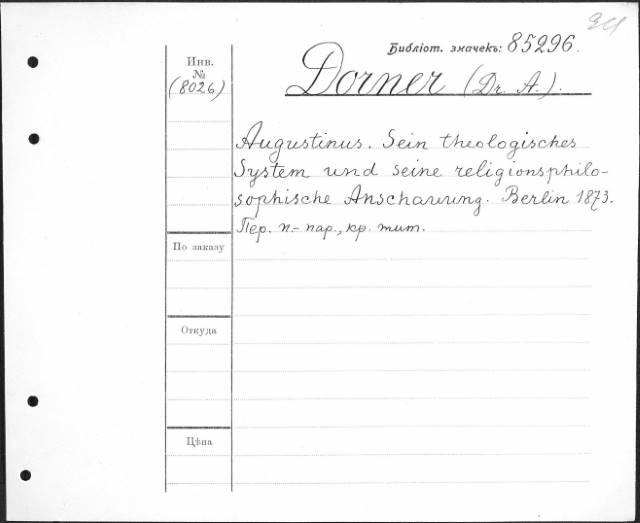 Библіот. значекъ: 85296.
Инв.
№
(8026)
Dorner (Dr. A.).
Augustinus. Sein theologisches
System und seine religionsphilo-
sophische Anschauung. Berlin 1873.
Пер. п.- пар., кр. тит.
По заказу
Откуда
Цѣна